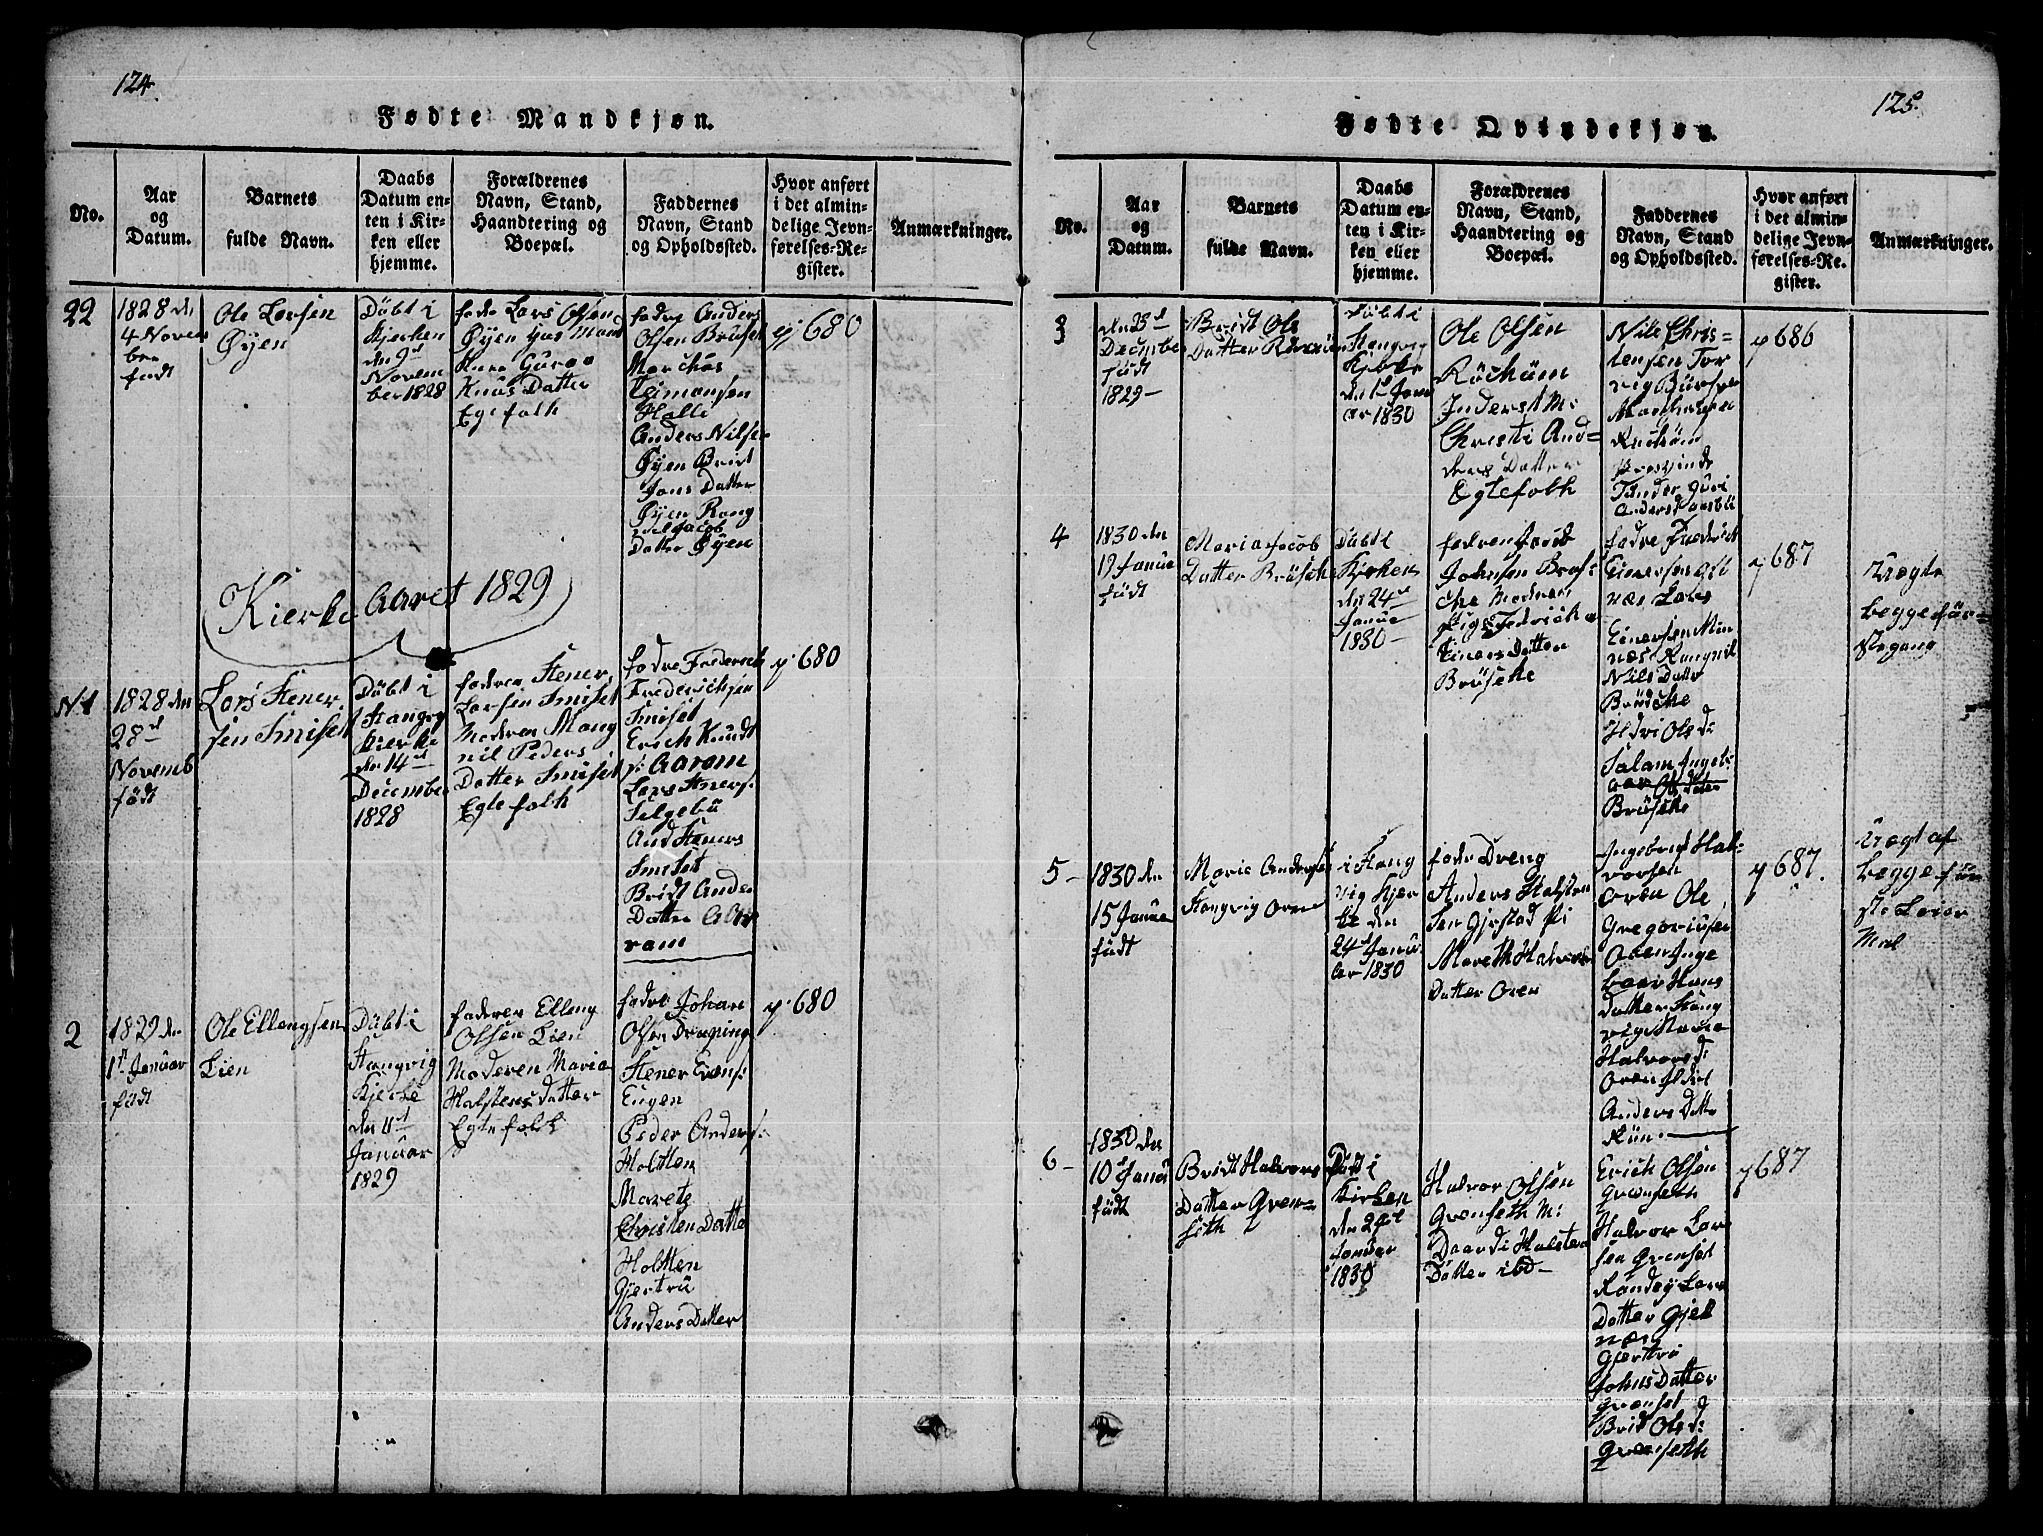 124
Fødte Mandkjøn.
No.
Aar
og
Datum.
Barnets
fulde Navn.
Daabs
Datum en-
ten i Kir-
ken eller
hjemme.
Forældrenes
Navn, Stand,
Haandtering og
Boepæl.
Faddernes
Navn, Stand
og Opholdssted.
Hvor anført
i det almin-
delige Jevn-
førelses-Re-
gister.
Anmærkninger.
22
1828 den
4 Novem
ber
født
Ole Larsen
Øyen
Döbt i
Kjerken
den 9d
Novem
ber 1828
fade Lars Olsen
Øyen hus Mand
Kune Guroa
Knus Datter
Egtefolk
fadre Anders
Olsen Brüset
Marchus
Halli
Anders Nilsen
Øyen Bridt
Jons Datter
Øyen Rang
nil Jacob
Datter Øyen
680
Kierke Aaret 1829
N 1
1828 den
28d
Novemb
födt
Lars Stener
sen Smiset
Döbt i
Stangvg
Kierke
den 14d
December
1828
fadren Stener
Larsen Smiset
Modren Mang
nil Peders
Datter Smiset
Egtefolk
fadre Frederich
Frederichsen
Smiset
Erich Knudt
s: Aaram
Lars Steners:
Selgebü
And Steners
Smiset
Bridt Ander
Datter Aaa
ram
680
2
1829 den
1st Januar
födt
Ole Ellengsen
Lien
Döbt i
Stangvig
Kjerke
den 11d
Januar
1829
faderen Elleng
Olsen Lien
Moderen Maria
Halstens Datter
Egtefolk
fadre Johan
Olsen Drøpping
Stener Evens:
Eugen
Peder Anders:
Holtten
Marete
Christen Datte
Holtten
Gjertrü
Anders Datter
680
125
Fødte Qvindekjøn.
No.
Aar
og
Datum.
Barnets
fulde Navn.
Daabs
Datum en-
ten i Kir-
ken eller
hjemme.
Forældrenes
Navn, Stand,
Haandtering og
Boepæl.
Faddernes
Navn, Stand
og Opholdssted.
Hvor anført
i det almin-
delige Jevn-
førelses-Re-
gister.
Anmærkninger.
3
den 25d
December
födt
1829
Bridt Ols
Datter
Döbt i
Stangvig
Kjerke
den 1st Janu
ar 1830
Ole Olsen
Röchüm
Inderst M:
Christi And=
ders Datter
Egtefolk
Nils Chris=
tensen Tor
vig
Anders
686
4
1830 den
19 Janua
födt
Maria Jacob
Datter Brüsche
Döbt i
Kjerken
den 24d
Janua
1830
fadren Jacob
Johnsen Brüs:
che Modren
Pige Fredricha
Einers Datter
Brüsche
fadre Fredrich
Einersen
næs Lars
Einersen Min
næs Rangnil
Nils Datter
Brüsche
Ols d:
Salam Ingeb:
Brüsche
687
Uægte
begge för=
ste gang
5
1830 den
15 Janua
födt
Marie Anders
Stangvig Oren
i Stang
vig Kjer
ke den
24d Janu
ar 1830
fader Dreng
Anders Halsten
sen Gjerstad Pi
Mareth Halvors
Datter Oren
Ingebrigt Hal=
vorsen
Oren Ole
Gregoriusen
Oren Inge
boer Hans
Datter Stang
vig Maria
Halvors d:
Oren
Anders Datte
687.
Uægt af
begge för
ste Leier
Maal
6
1830 den
10d Janua
födt
Bridt Halvors
Datter Gren=
seth
Döbt i
Kirken
den 24d
Januar
1830
Halvor Olsen
Grønseth M:
Daardi Halsten
Datter ibd
Erich Olsen
Grønseth
Halvor Lar
sen Grønset
Randey Lars
Datter Gjel
næs
Gjertrü
Johns Datter
Grønset
Brid Ols d:
Grønseth
687